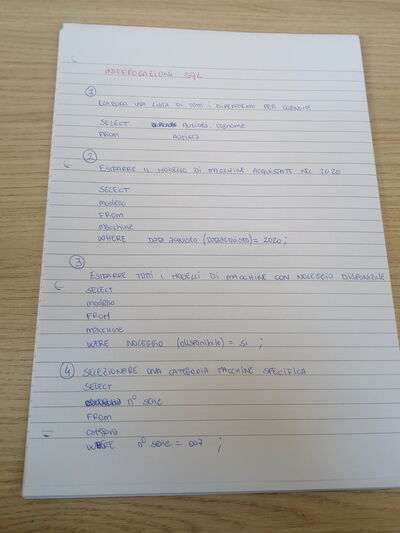 INTERROGAZIONI SQL
1
ELABORA UNA LISTA DI TUTTI I DIPENDENTI PER COGNOME
SELECT Autista.cognome
FROM Autista
2
ESTRARRE IL MODELLO DI MACCHINE ACQUISTATE NEL 2020
SELECT
modello
FROM
Macchine
WHERE DATA ACQUISTO = 2020;
3
ESTRARRE TUTTI I MODELLI DI MACCHINE CON NOLEGGIO DISPONIBILE
SELECT
modello
FROM
macchine
WERE NOLEGGIO (disponibile) = si ;
4 SELEZIONARE UNA CATEGORIA MACCHINE SPECIFICA
SELECT
n° serie
FROM
categoria
WHERE n° serie = 007 ;